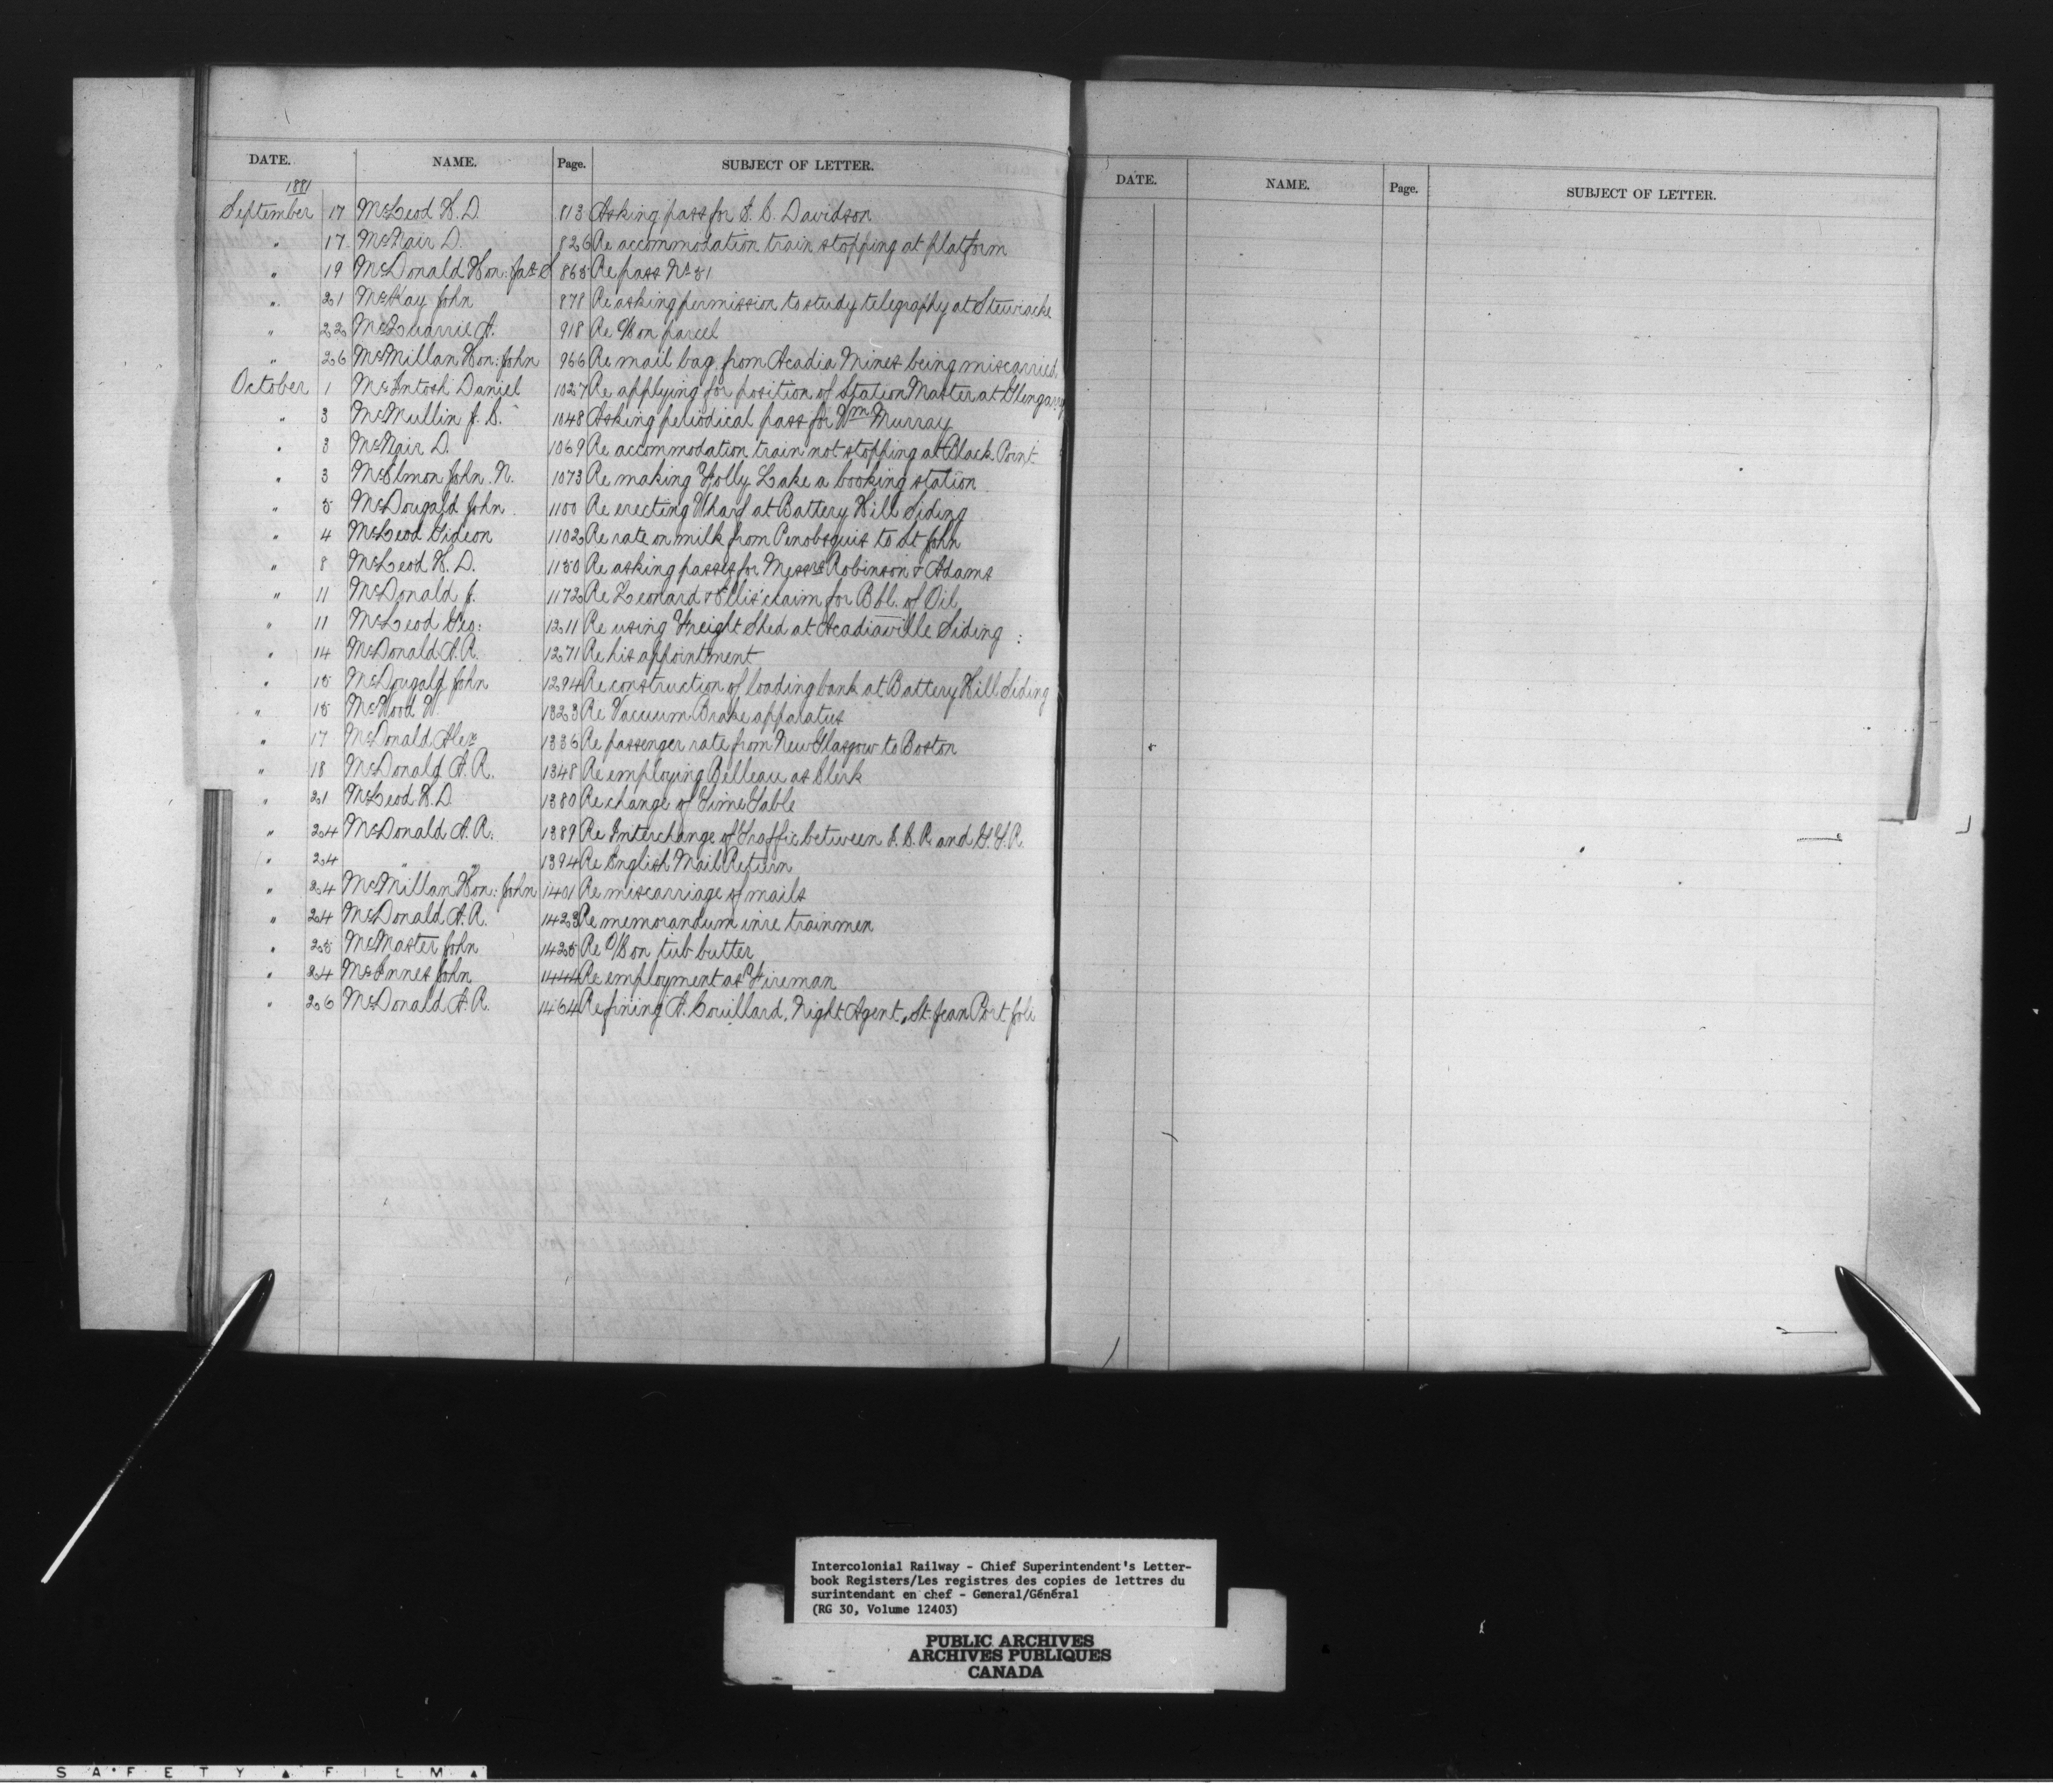 DATE. NAME. Page. SUBJECT OF LETTER.
1881
September 17 McLeod H. D. 813 Asking pass for S. C. Davidson
" 17 McNair D. 826 Re accommodation train stopping at platform
" 19 McDonald Hon: Jas 865 Re pass No 51
" 21 McKay John 878 Re asking permission to study telegraphy at Stewiacke
" 22 McQuarrie A. 918 Re parcel
" 26 McMillan Hon: John 966 Re mail bag from Acadia Mines being miscarried
October 1 McIntosh Daniel 1027 Re applying for position of Station Master at Glengarry
" 3 McMullin J. 1048 Asking periodical pass for Wm Murray
" 3 McNair D. 1069 Re accommodation train not stopping at Black Point
" 3 McElmon John N. 1073 Re making Folly Lake a booking station
" 5 McDougald John 1100 Re erecting Wharf at Battery Hill Siding
" 4 McLeod Gideon 1102 Re rate on milk from Penobsquis to St John
" 8 McLeod H. D. 1150 Re asking passes for Messrs Robinson & Adams
" 11 McDonald J. 1172 Re Leonard & Ellis' claim for Bbl. of Oil
" 11 McLeod Geo: 1211 Re using Freight Shed at Acadiaville Siding
" 14 McDonald A. R. 1271 Re his appointment
" 15 McDougald John 1294 Re construction of loading bank at Battery Hill Siding
" 15 McWood W. 1323 Re Vacuum Brake apparatus
" 17 McDonald Alex 1336 Re passenger rate from New Glasgow to Boston
" 18 McDonald A. R. 1348 Re employing Belleau as Clerk
" 21 McLeod H. D. 1380 Re change of Time Table
" 24 McDonald A. R. 1389 Re Interchange of Traffic between I. C. R and G. T. R
" 24 " " 1394 Re English Mail Return
" 24 McMillan Hon: John 1401 Re miscarriage of mails
" 24 McDonald A. R. 1423 Re memorandum in re trainmen
" 25 McMaster John 1425 Re O/C on tub butter
" 24 McInnes John 1444 Re employment as Fireman
" 26 McDonald A. R. 1464 Re fining A. Couillard, Night Agent, St. Jean Port Joli
DATE. NAME. Page. SUBJECT OF LETTER.
Intercolonial Railway - Chief Superintendent's Letter-
book Registers/Les registres des copies de lettres du
surintendant en chef - General/Général
(RG 30, Volume 12403)
PUBLIC ARCHIVES
ARCHIVES PUBLIQUES
CANADA
SAFETY ▲ FILM ▲